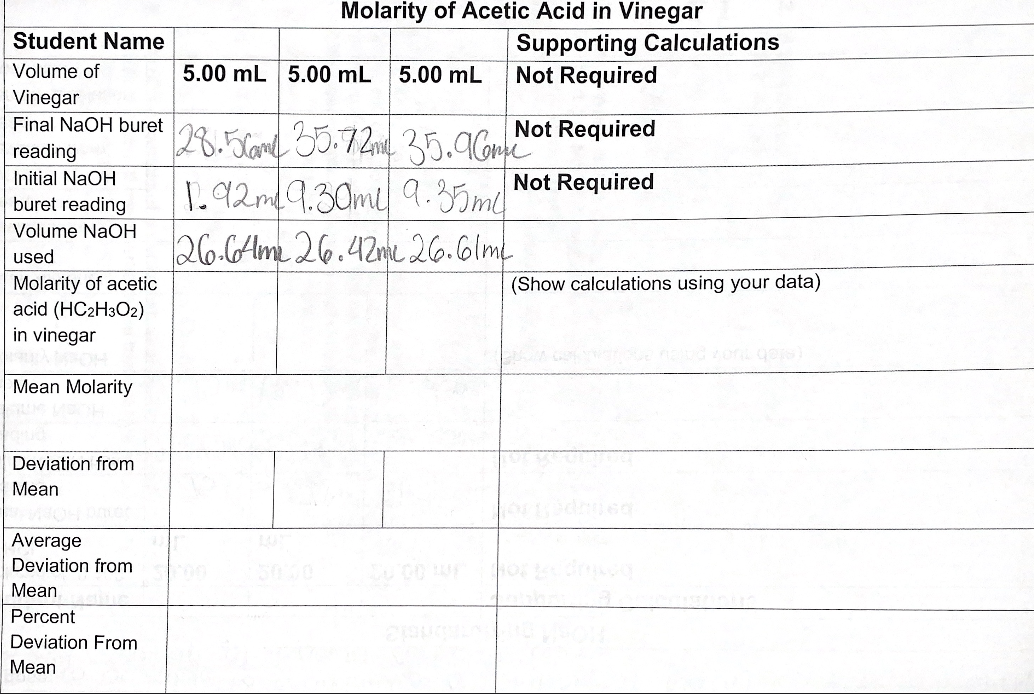 Molarity of Acetic Acid in Vinegar
Student Name Supporting Calculations
Volume of Vinegar 5.00 mL 5.00 mL 5.00 mL Not Required
Final NaOH buret reading 28.56mL 35.72mL 35.96mL Not Required
Initial NaOH buret reading 1.92mL 9.30mL 9.35mL Not Required
Volume NaOH used 26.64mL 26.42mL 26.61mL
Molarity of acetic acid (HC2H3O2) in vinegar (Show calculations using your data)
Mean Molarity
Deviation from Mean
Average Deviation from Mean
Percent Deviation From Mean